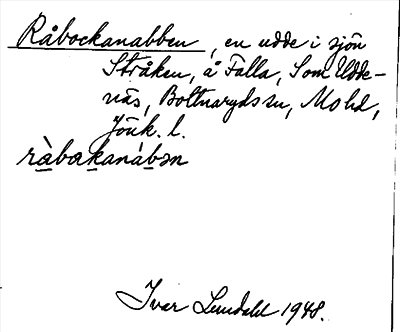 Råbockanabben, en udde i sjön
Stråken, å Falla, Som Udde-
näs, Bottnaryds sn, Mo hd,
Jönk. l.
ràbωkanábən
Ivar Lundahl 1948.